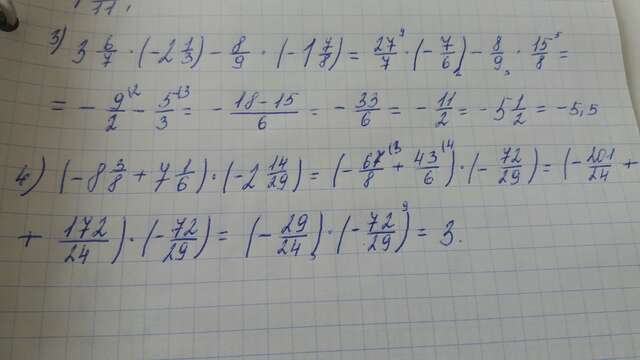 11,
3) 3 6/7 · (-2 1/3) - 8/9 · (-1 7/8) = 27/7 ⁹ · (-7/6 ₂) - 8/9 ₃ · 15/8 ⁵ =
= - 9/2 ʹ³ - 5/3 ʹ² = - -18-15/6 = - 33/6 = - 11/2 = -5 1/2 = -5,5
4) (-8 3/8 + 7 1/6) · (-2 14/29) = (-67/8 ʹ³ + 43/6 ʹ⁴) · (-72/29) = (-201/24 +
+ 172/24) · (-72/29) = (-29/24) · (-72/29) = 3.